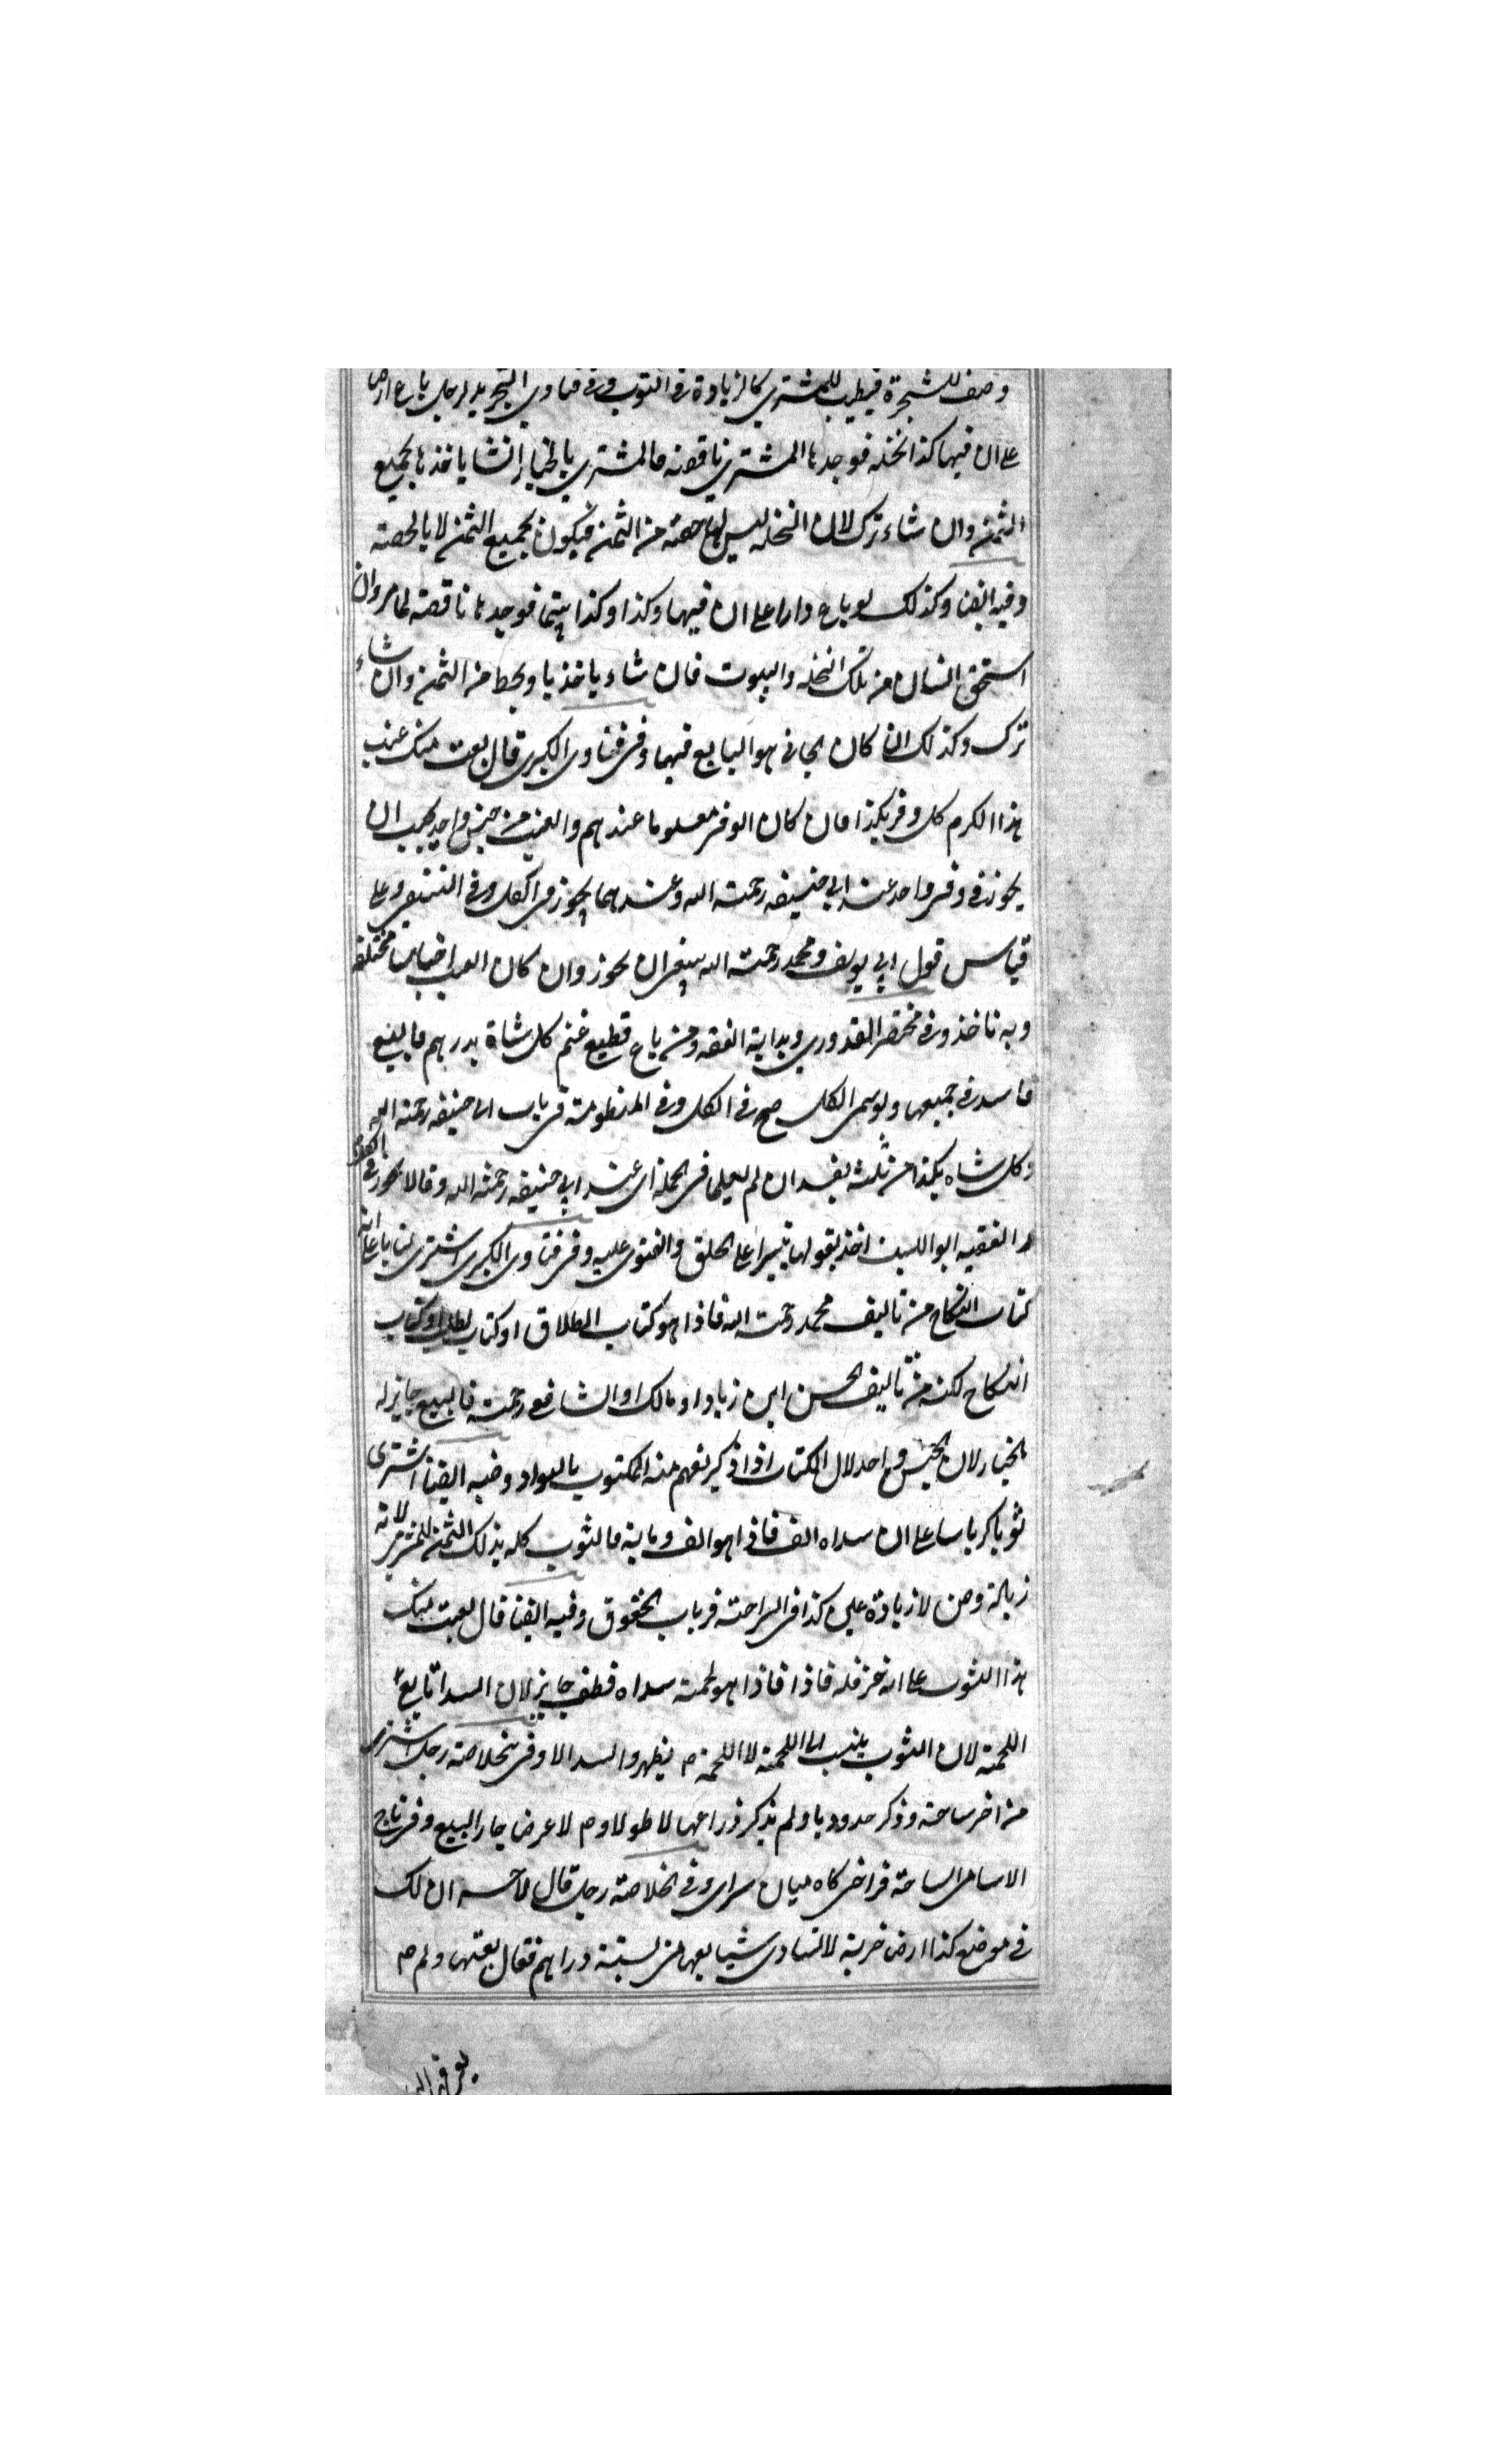 وصف للشجرة فيطيب للمشتري كالزيادة في الثوب وفي فتاوي التجريد لرجل باع ارض
على ان فيها كذا نخله فوجدها المشتري ناقصه فالمشتري بالخيار ان شا ياخذها بجميع
الثمن وان شاء ترك لان النخله ليس لها حصته من الثمن فيكون بجميع الثمن لا بالحصته
وفيه ايضا وكذلك لو باع دارا على ان فيها وكذا وكذا بيتا فوجدها ناقصته لما مر وان
استحق انسان من تلك النخله والبيوت فان شاء ياخذها ويحط من الثمن وان شاء
ترك وكذلك ان كان الجاني هو البايع فيها وفي فتاوى الكبرى قال بعت منك عنب
هذا الكرم كل وقر بكذا فان كان الوقر معلوما عندهم والعنب من جنس واحد يجب ان
يجوز في وقر واحد عند ابي حنيفه رحمته الله وعندهما يجوز في الكل وفي وعلى
قياس قول ابي يوسف ومحمد رحمته الله ينبغي ان يجوز وان كان العنب اجناسا مختلفه
وبه ناخذ وفي مختصر القدوري وبداية الفقه ومن باع قطيع غنم كل شاة بدرهم فالبيع
فاسد في جميعها ولو سمى الكل صح في الكل وفي المنظومته في باب ابي حنيفه رحمته الله
وكل شاه بكذا من ثلثه يفسد ان لم يعلما في الجمله اى عند ابي حنيفه رحمته الله وقالا يجوز في الكل
الفقيه ابو الليث اخذ بقولهما تيسيرا على الخلق والفتوى عليه وفي فتاوى الكبرى اشترى كتابا على انه
كتاب النكاح من تاليف محمد رحمته الله فاذا هو كتاب الطلاق او كتاب الطب او كتاب
النكاح لكنه من تاليف الحسن ابن زياد او مالك او الشافعي رحمته فالبيع جايز له
الخيار لان الجنس واحد لان الكتاب اذا ذكر يفهم منه المكتوب بالسواد وفيه ايضا اشترى
ثوبا كرباسا على ان سداه الف فاذا هو الف وماية فالثوب كله بذلك الثمن للمشتري لانه
زيادة وصف لا زيادة على كذا في السراجته في باب الحقوق وفيه ايضا قال بعت منك
هذا الثوب على انه خز فله فاذا فاذا هو لحمته سداه قطن جايز لان السدا تابع
اللحمته لان الثوب ينسب الى اللحمته لا اللحمة م يظهر والسدا لا وفي خلاصته رجل اشترى
من اخر ساحته وذكر حدودها ولم يذكر ذراعها لا طولا وم لا عرضا جاز البيع وفي تاج
الاسامى الساحة فراخى كاه ميان سراى وفي الخلاصته رجل قال لآخر ان لك
في موضع كذا ارض خربة لا تساوى شيا بعها منى بستة دراهم فقال بعتها ولم م